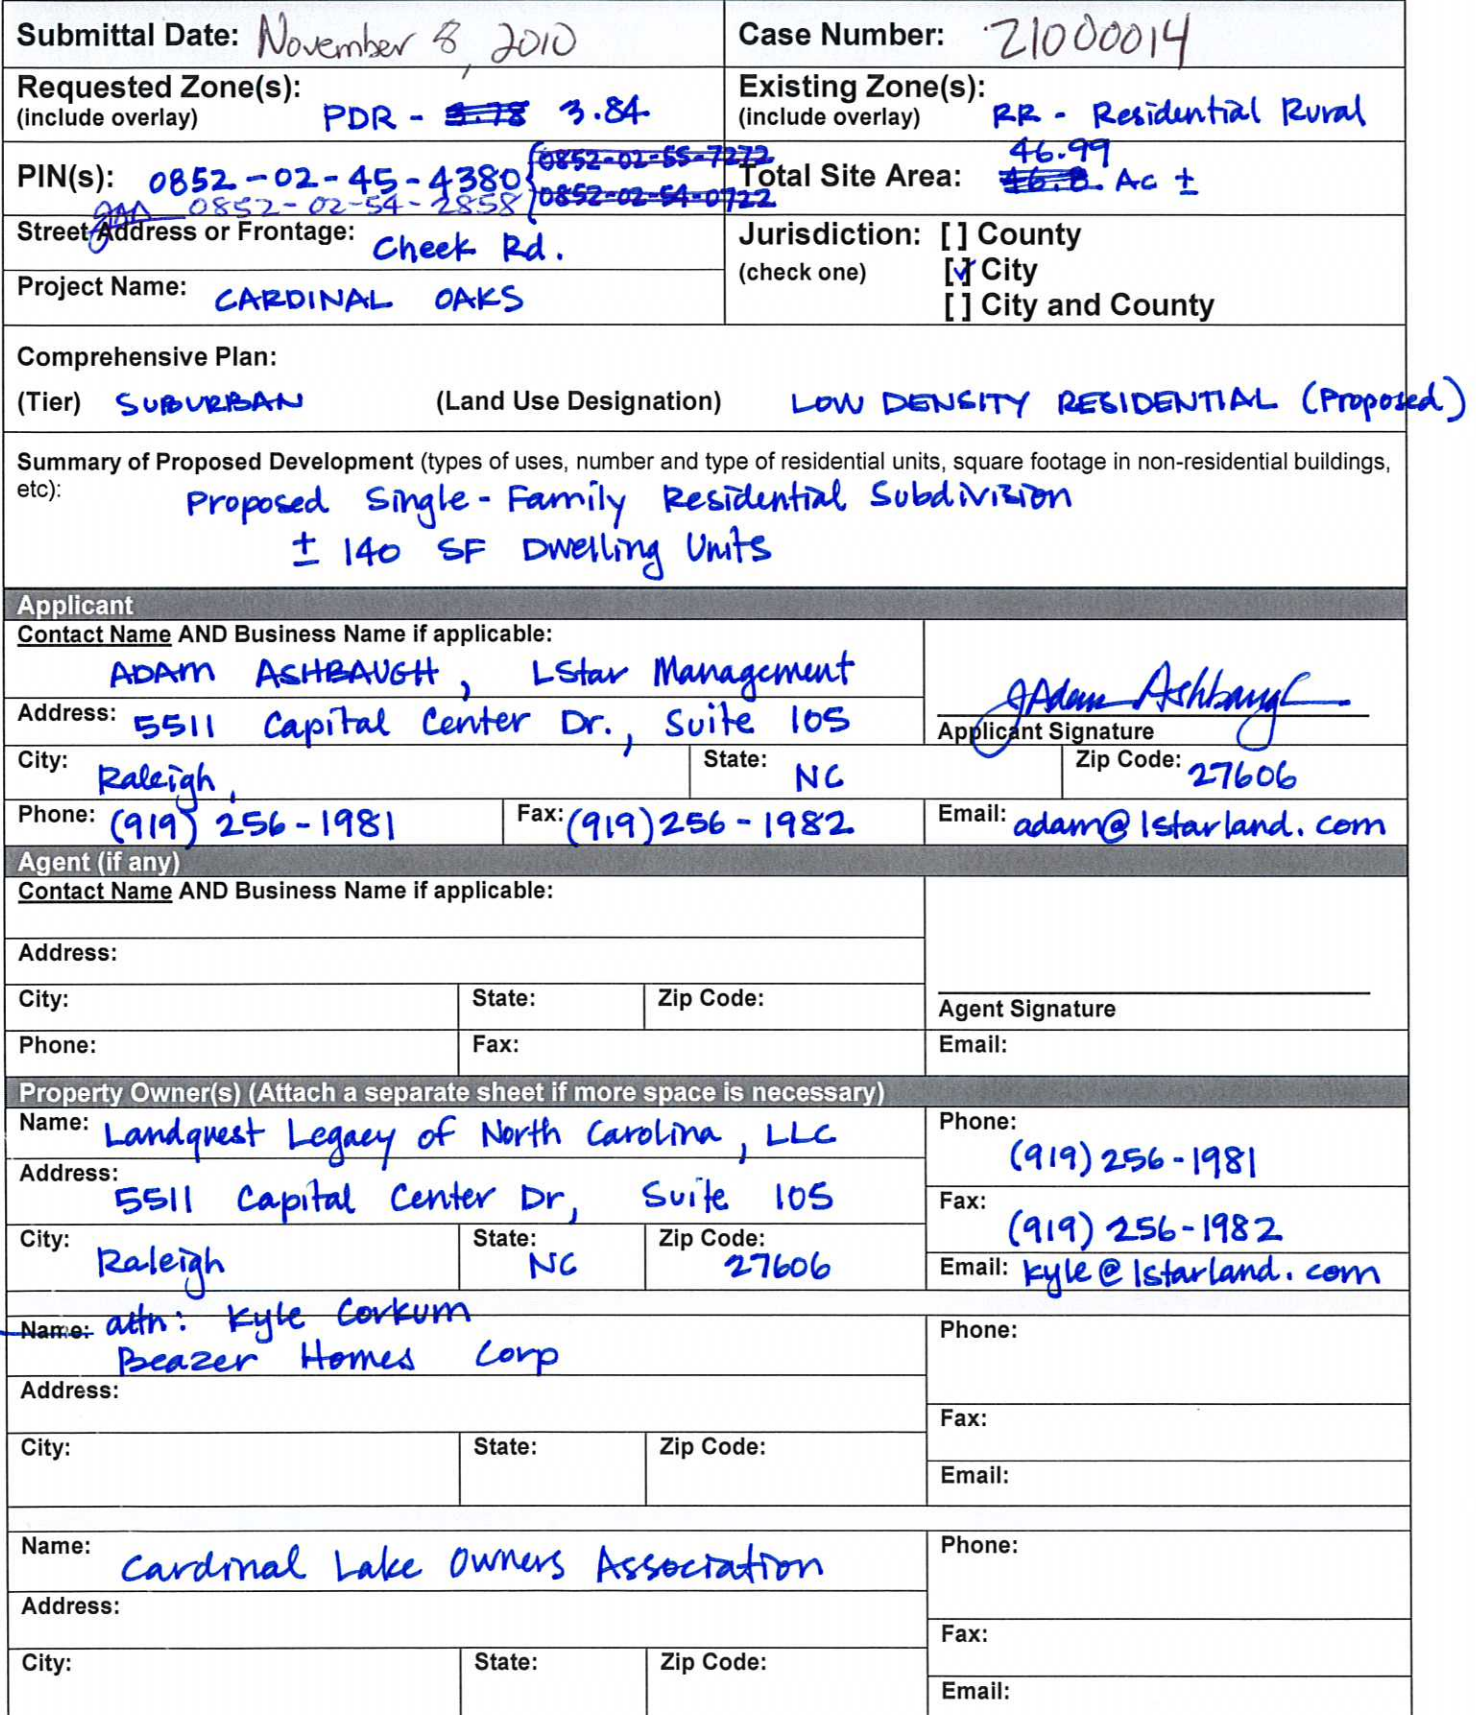 Submittal Date: November 8, 2010
Case Number: Z1000014
Requested Zone(s):
(include overlay) PDR - 3.78 3.84
Existing Zone(s):
(include overlay) RR - Residential Rural
PIN(s): 0852-02-45-4380 0852-02-55-7272
0852-02-54-2858 0852-02-54-0722
46.99
Total Site Area: 46.8 Ac ±
Street Address or Frontage: Cheek Rd.
Project Name: CARDINAL OAKS
Jurisdiction: [ ] County
(check one) [✓] City
[ ] City and County
Comprehensive Plan:
(Tier) SUBURBAN (Land Use Designation) LOW DENSITY RESIDENTIAL (Proposed)
Summary of Proposed Development (types of uses, number and type of residential units, square footage in non-residential buildings,
etc): Proposed Single-Family Residential Subdivision
± 140 SF Dwelling Units
Applicant
Contact Name AND Business Name if applicable:
ADAM ASHBAUGH, LStar Management
Address: 5511 Capital Center Dr., Suite 105
J Adam Ashbaugh
Applicant Signature
City: Raleigh, State: NC Zip Code: 27606
Phone: (919) 256-1981 Fax: (919) 256-1982 Email: adam@lstarland.com
Agent (if any)
Contact Name AND Business Name if applicable:
Address:
City: State: Zip Code:
Agent Signature
Phone: Fax: Email:
Property Owner(s) (Attach a separate sheet if more space is necessary)
Name: Landquest Legacy of North Carolina, LLC
Phone: (919) 256-1981
Address: 5511 Capital Center Dr, Suite 105
Fax: (919) 256-1982
City: Raleigh State: NC Zip Code: 27606
Email: kyle@lstarland.com
Name: attn: Kyle Corkum
Beazer Homes Corp
Phone:
Address:
Fax:
City: State: Zip Code:
Email:
Name: Cardinal Lake Owners Association
Phone:
Address:
Fax:
City: State: Zip Code:
Email: